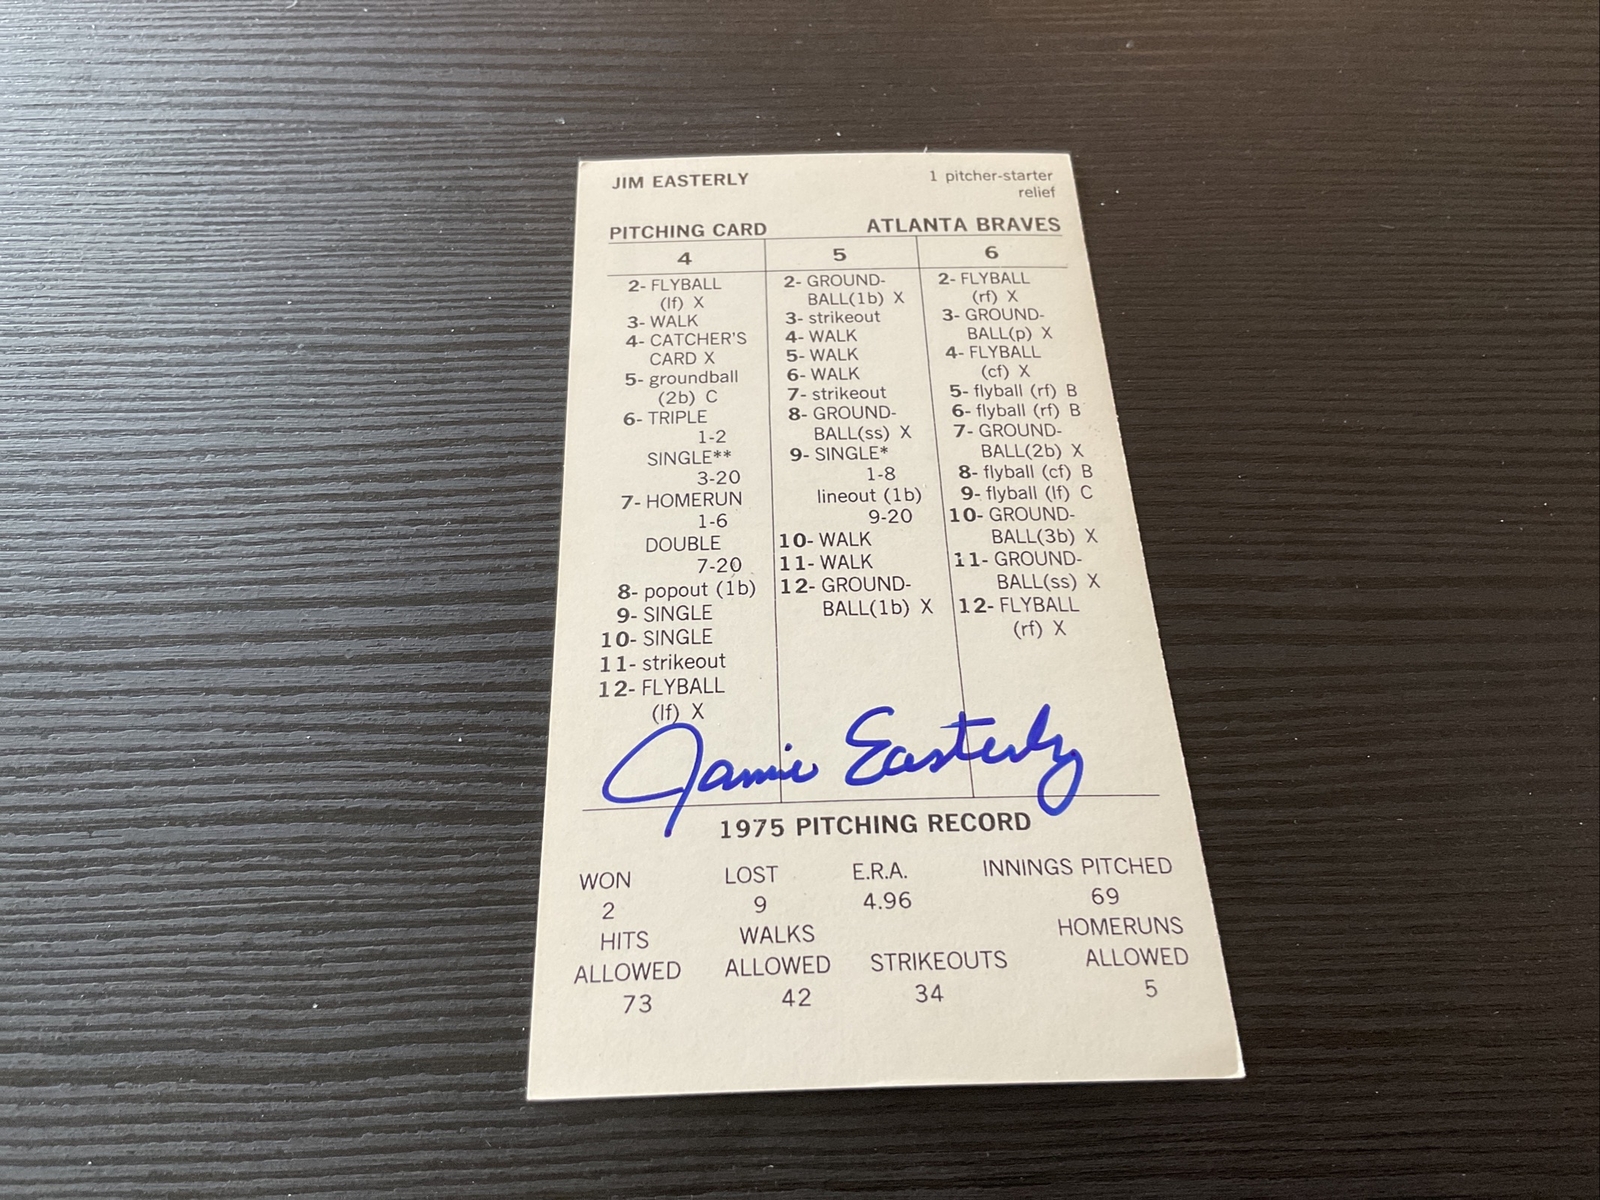 JIM EASTERLY
1 pitcher-starter
relief
PITCHING CARD
ATLANTA BRAVES
4
2- FLYBALL
(lf) X
3- WALK
4- CATCHER'S
CARD X
5- groundball
(2b) C
6- TRIPLE
1-2
SINGLE**
3-20
7- HOMERUN
1-6
DOUBLE
7-20
8- popout (1b)
9- SINGLE
10- SINGLE
11- strikeout
12- FLYBALL
(lf) X
5
2- GROUND-
BALL(1b) X
3- strikeout
4- WALK
5- WALK
6- WALK
7- strikeout
8- GROUND-
BALL(ss) X
9- SINGLE*
1-8
lineout (1b)
9-20
10- WALK
11- WALK
12- GROUND-
BALL(1b) X
6
2- FLYBALL
(rf) X
3- GROUND-
BALL(p) X
4- FLYBALL
(cf) X
5- flyball (rf) B
6- flyball (rf) B
7- GROUND-
BALL(2b) X
8- flyball (cf) B
9- flyball (lf) C
10- GROUND-
BALL(3b) X
11- GROUND-
BALL(ss) X
12- FLYBALL
(rf) X
Jamie Easterly
1975 PITCHING RECORD
WON LOST E.R.A. INNINGS PITCHED
2 9 4.96 69
HITS WALKS HOMERUNS
ALLOWED ALLOWED STRIKEOUTS ALLOWED
73 42 34 5